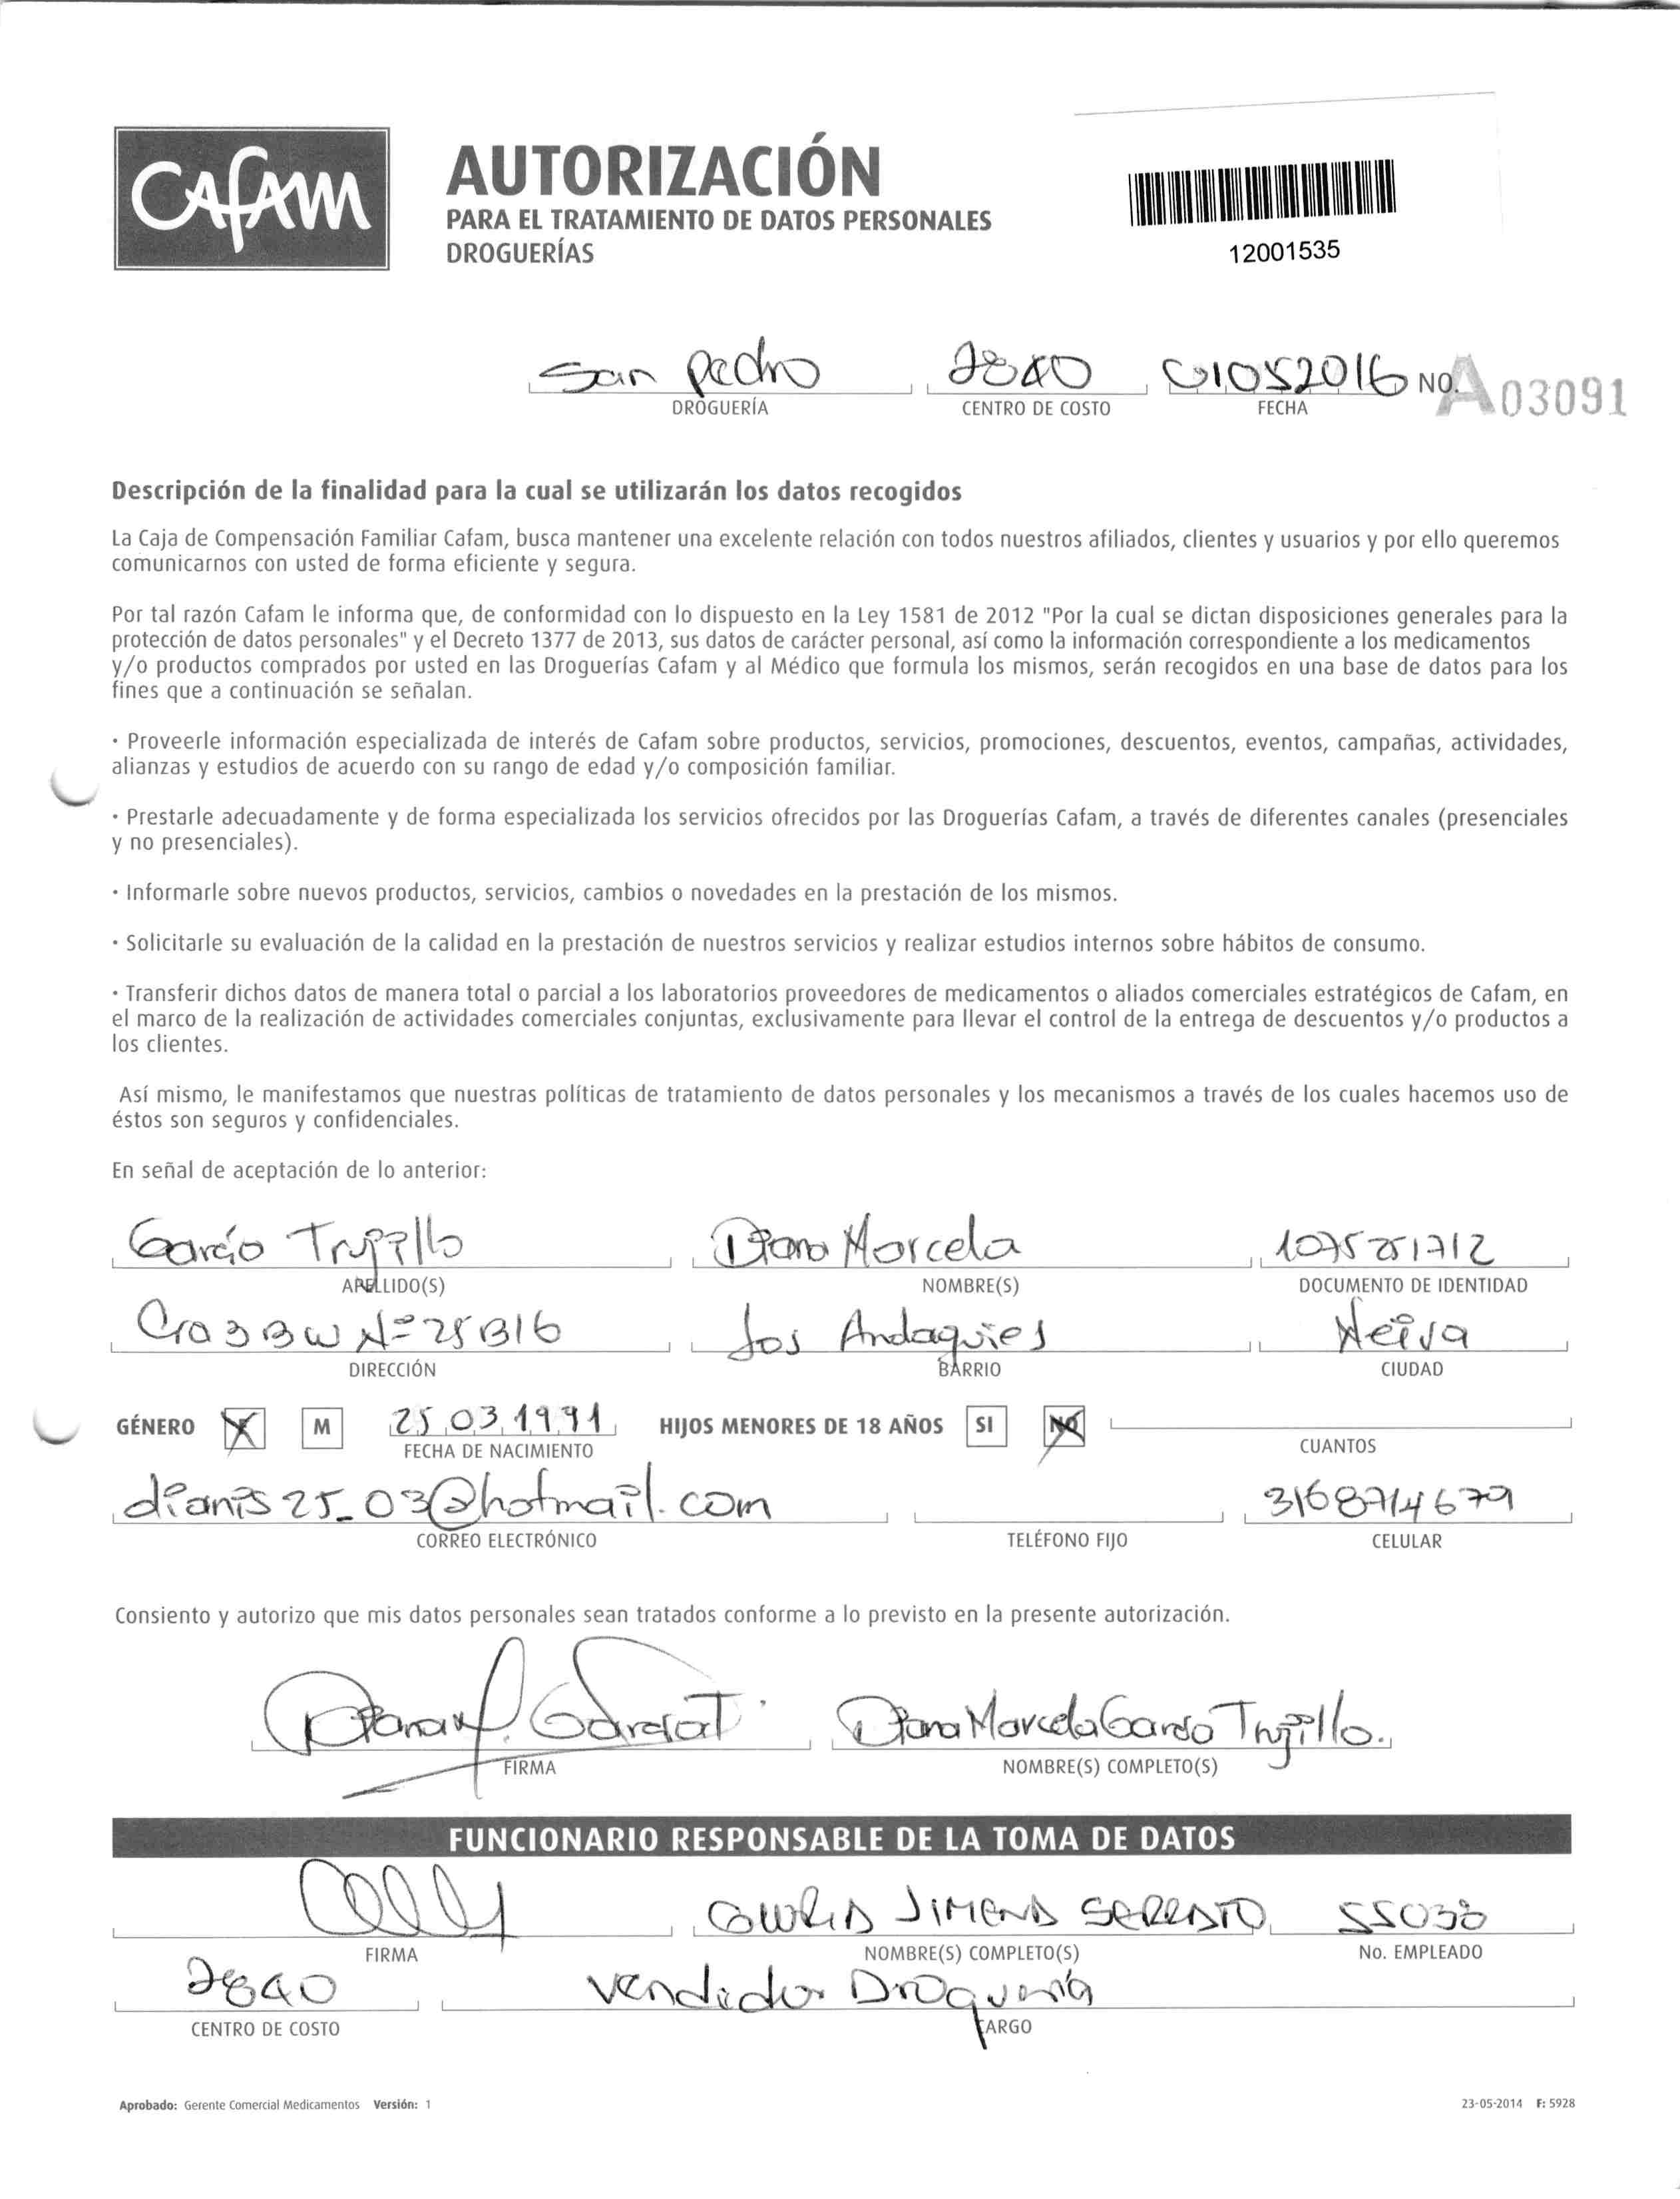 CAFAM
AUTORIZACIÓN
PARA EL TRATAMIENTO DE DATOS PERSONALES
DROGUERÍAS
12001535
San Pedro 2840 01052016 NO. A03091
DROGUERÍA CENTRO DE COSTO FECHA
Descripción de la finalidad para la cual se utilizarán los datos recogidos
La Caja de Compensación Familiar Cafam, busca mantener una excelente relación con todos nuestros afiliados, clientes y usuarios y por ello queremos
comunicarnos con usted de forma eficiente y segura.
Por tal razón Cafam le informa que, de conformidad con lo dispuesto en la Ley 1581 de 2012 "Por la cual se dictan disposiciones generales para la
protección de datos personales" y el Decreto 1377 de 2013, sus datos de carácter personal, así como la información correspondiente a los medicamentos
y/o productos comprados por usted en las Droguerías Cafam y al Médico que formula los mismos, serán recogidos en una base de datos para los
fines que a continuación se señalan.
· Proveerle información especializada de interés de Cafam sobre productos, servicios, promociones, descuentos, eventos, campañas, actividades,
alianzas y estudios de acuerdo con su rango de edad y/o composición familiar.
· Prestarle adecuadamente y de forma especializada los servicios ofrecidos por las Droguerías Cafam, a través de diferentes canales (presenciales
y no presenciales).
· Informarle sobre nuevos productos, servicios, cambios o novedades en la prestación de los mismos.
· Solicitarle su evaluación de la calidad en la prestación de nuestros servicios y realizar estudios internos sobre hábitos de consumo.
· Transferir dichos datos de manera total o parcial a los laboratorios proveedores de medicamentos o aliados comerciales estratégicos de Cafam, en
el marco de la realización de actividades comerciales conjuntas, exclusivamente para llevar el control de la entrega de descuentos y/o productos a
los clientes.
Así mismo, le manifestamos que nuestras políticas de tratamiento de datos personales y los mecanismos a través de los cuales hacemos uso de
éstos son seguros y confidenciales.
En señal de aceptación de lo anterior:
García Trujillo Diana Marcela
APELLIDO(S) NOMBRE(S) DOCUMENTO DE IDENTIDAD
Cra 3 B W Nº 25 B16 Los Andaquies Neiva
DIRECCIÓN BARRIO CIUDAD
GÉNERO M 25 03 1991 HIJOS MENORES DE 18 AÑOS SI NO
FECHA DE NACIMIENTO CUANTOS
dianis25_03@hotmail.com 3168714679
CORREO ELECTRÓNICO TELÉFONO FIJO CELULAR
Consiento y autorizo que mis datos personales sean tratados conforme a lo previsto en la presente autorización.
Diana M. Garcia T. Diana Marcela Garcia Trujillo.
FIRMA NOMBRE(S) COMPLETO(S)
FUNCIONARIO RESPONSABLE DE LA TOMA DE DATOS
JIMENA SERRATO 55038
FIRMA NOMBRE(S) COMPLETO(S) No. EMPLEADO
2840 Vendedor Droguería
CENTRO DE COSTO CARGO
Aprobado: Gerente Comercial Medicamentos Versión: 1 23-05-2014 F: 5928